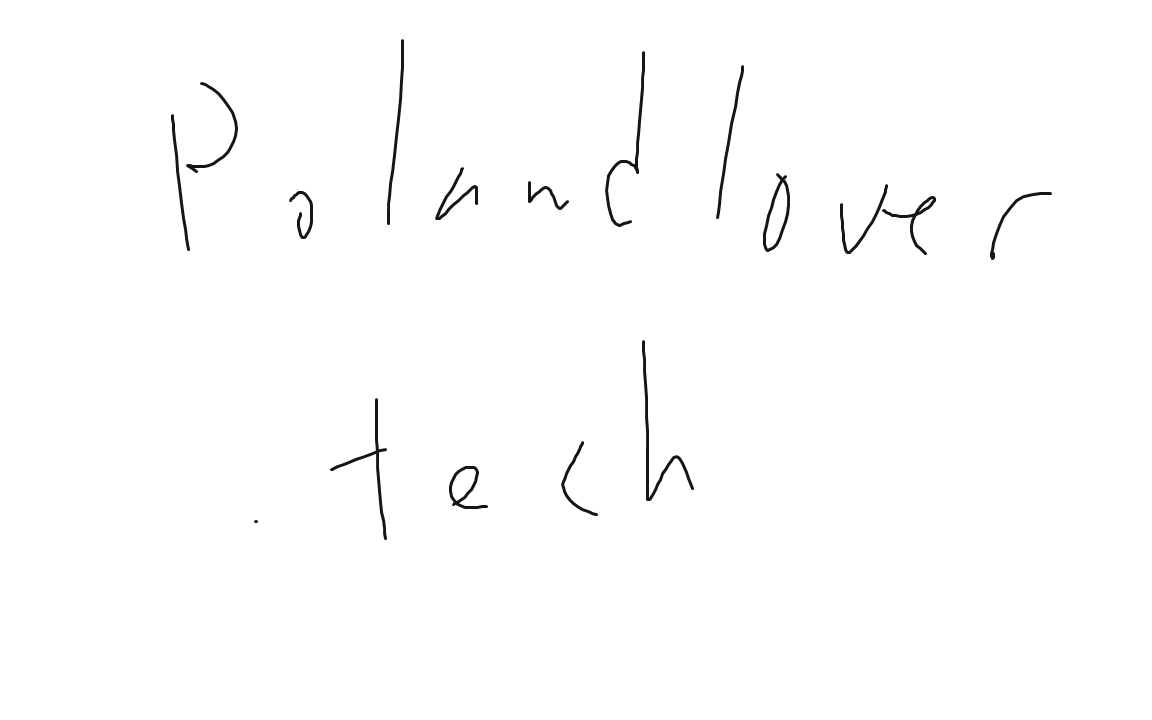 Polandlover
.tech